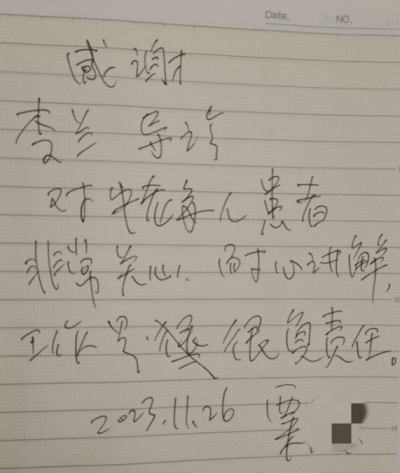 Date. NO.
感谢
李兰 导诊
对年老每人患者
非常关心、耐心讲解,
工作 很负责任。
2023.11.26 栗